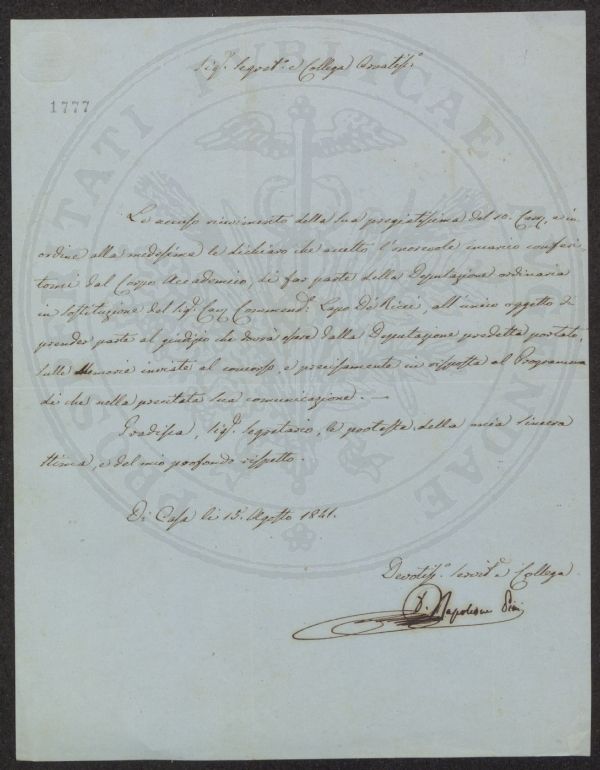 Sig.r Segret.o e Collega Ornatiss.o
1777
PROSPERITATI PUBLICAE AUGENDAE
Le accuso ricevimento della sua pregiatissima del 10. Corr.e e in
ordine alla medesima le dichiaro che accetto l'onorevole incarico conferi-
tomi dal Corpo Accademico, di far parte della Deputazione ordinaria
in sostituzione del Sig.r Cav. Commend.e Lapo De Ricci, all'unico oggetto di
prender parte al giudizio che dovrà essere dalla Deputazione predetta portato,
sulle Memorie inviate al concorso, e precisamente in risposta al Programma
di che nella precitata sua comunicazione. —
Gradisca, Sig.r Segretario, le proteste della mia sincera
stima, e del mio profondo rispetto.
Di Casa li 13. Agosto 1841.
Devotiss.o Servit.e e Collega
D. Napoleone Pini